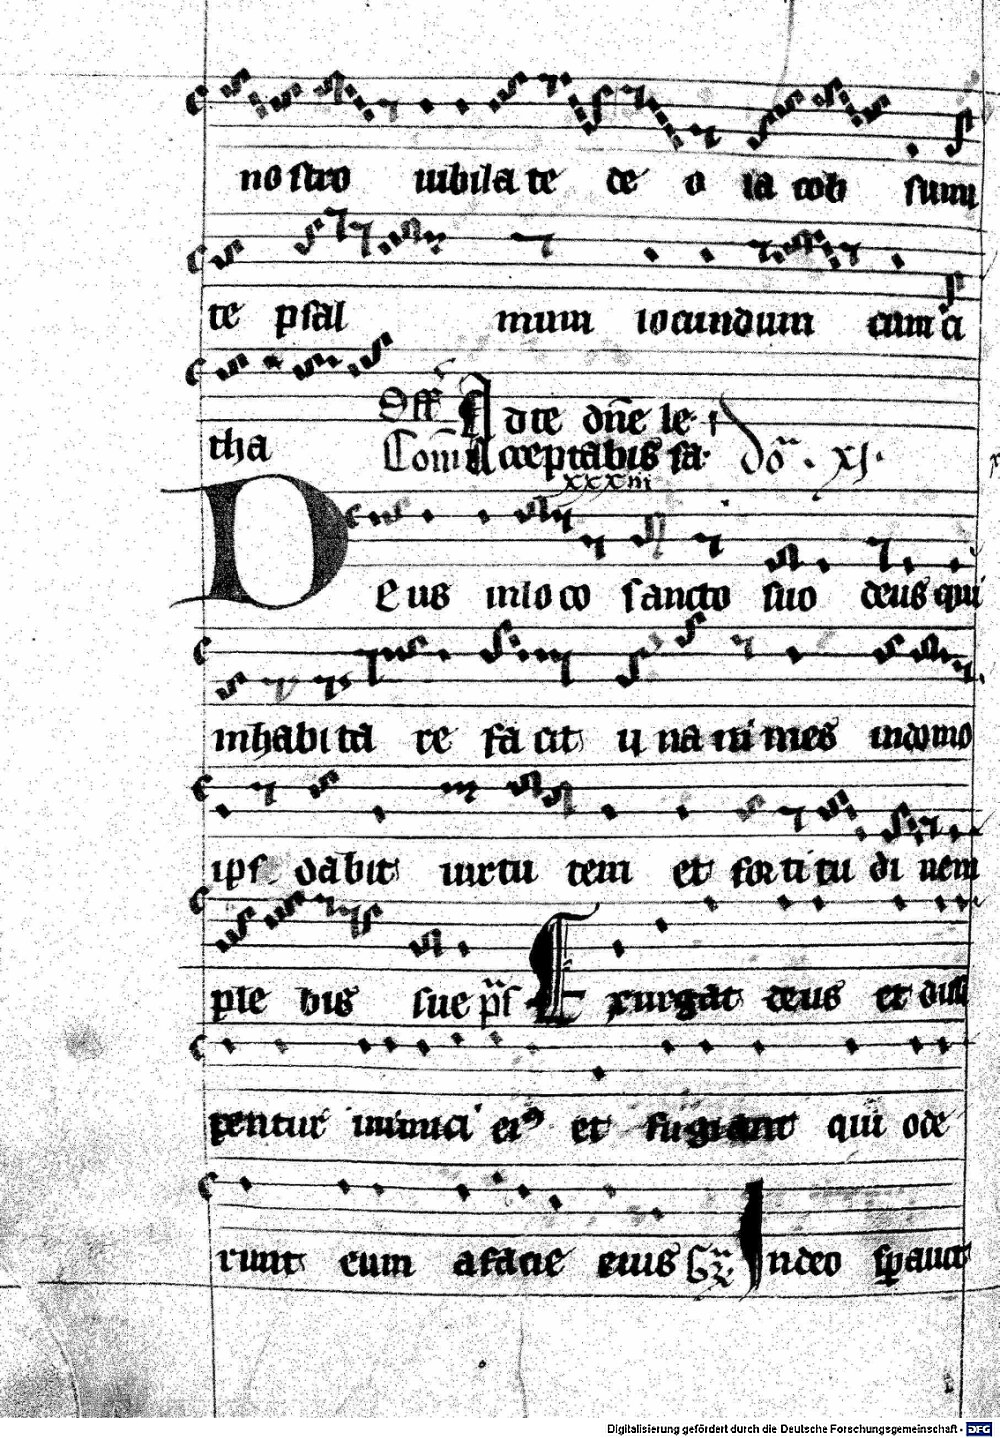 no stro iubila te de o ia cob sumi
te psal mum iocundum cum ci
tha
Off Ad te dñe le
Com̃ Acceptabis sa· do᷉ . xj.
xxxııı
Deus in lo co sancto suo deus qui
inhabita re facit u na ni mes indomo
ips dabit uirtu tem et forti tu di nem
ple bis sue ps Exurgat deus et dissi
pentur inimici ei⁹ et fugiant qui ode
runt eum afacie eius Gr. In deo sperauit
Digitalisierung gefördert durch die Deutsche Forschungsgemeinschaft - DFG